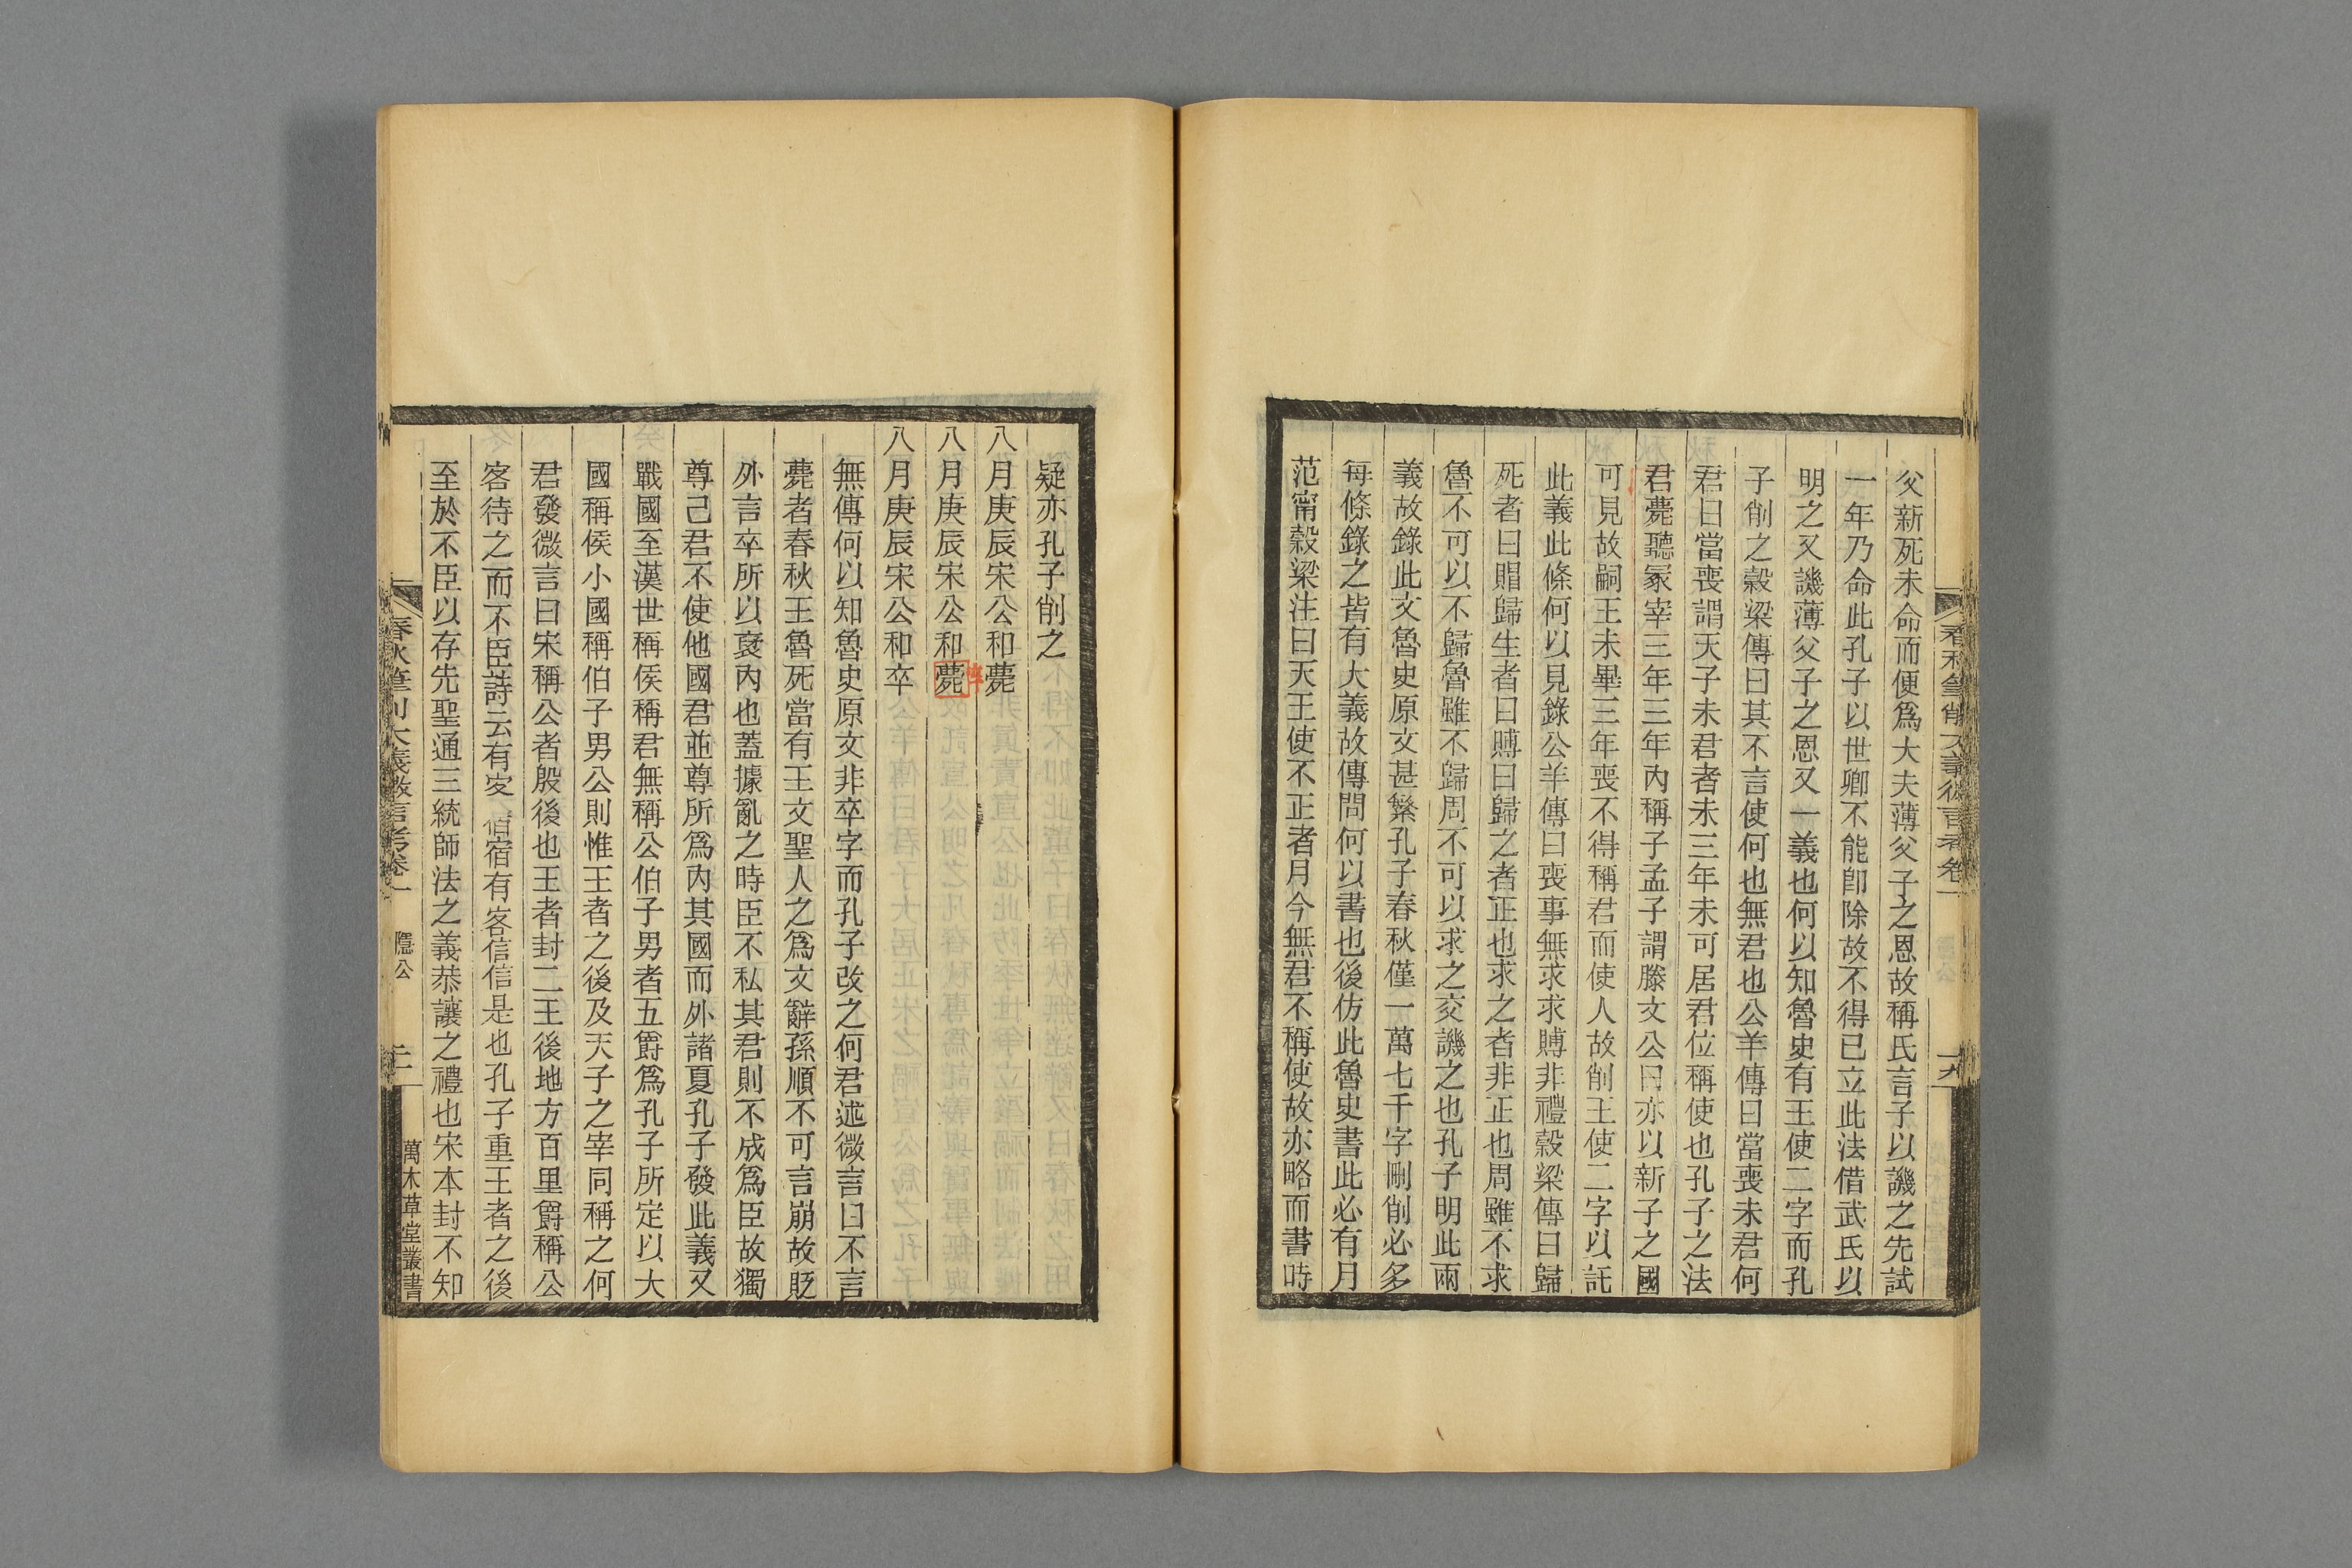 父新死未命而便爲大夫薄父子之恩故稱氏言子以譏之先試
一年乃命此孔子以世卿不能卽除故不得已立此法借武氏以
明之又譏薄父子之恩又一義也何以知魯史有王使二字而孔
子削之穀梁傳曰其不言使何也無君也公羊傳曰當喪未君何
君曰當喪謂天子未君者未三年未可居君位稱使也孔子之法
君薨聽冢宰三年三年內稱子孟子謂滕文公曰亦以新子之國
可見故嗣王未畢三年喪不得稱君而使人故削王使二字以託
此義此條何以見錄公羊傳曰喪事無求求賻非禮穀梁傳曰歸
死者曰賵歸生者曰賻曰歸之者正也求之者非正也周雖不求
魯不可以不歸魯雖不歸周不可以求之交譏之也孔子明此兩
義故錄此文魯史原文甚繁孔子春秋僅一萬七千字刪削必多
每條錄之皆有大義故傳問何以書也後仿此魯史書此必有月
范甯穀梁注曰天王使不正者月今無君不稱使故亦略而書時
疑亦孔子削之
八月庚辰宋公和薨
八月庚辰宋公和薨
八月庚辰宋公和卒
無傳何以知魯史原文非卒字而孔子改之何君述微言曰不言
薨者春秋王魯死當有王文聖人之爲文辭孫順不可言崩故貶
外言卒所以裦內也蓋據亂之時臣不私其君則不成爲臣故獨
尊己君不使他國君並尊所爲內其國而外諸夏孔子發此義又
戰國至漢世稱侯稱君無稱公伯子男者五爵爲孔子所定以大
國稱侯小國稱伯子男公則惟王者之後及天子之宰同稱之何
君發微言曰宋稱公者殷後也王者封二王後地方百里爵稱公
客待之而不臣詩云有客宿宿有客信信是也孔子重王者之後
至於不臣以存先聖通三統師法之義恭讓之禮也宋本封不知
春秋筆削大義微言考卷一
隱公
二十
萬木草堂叢書